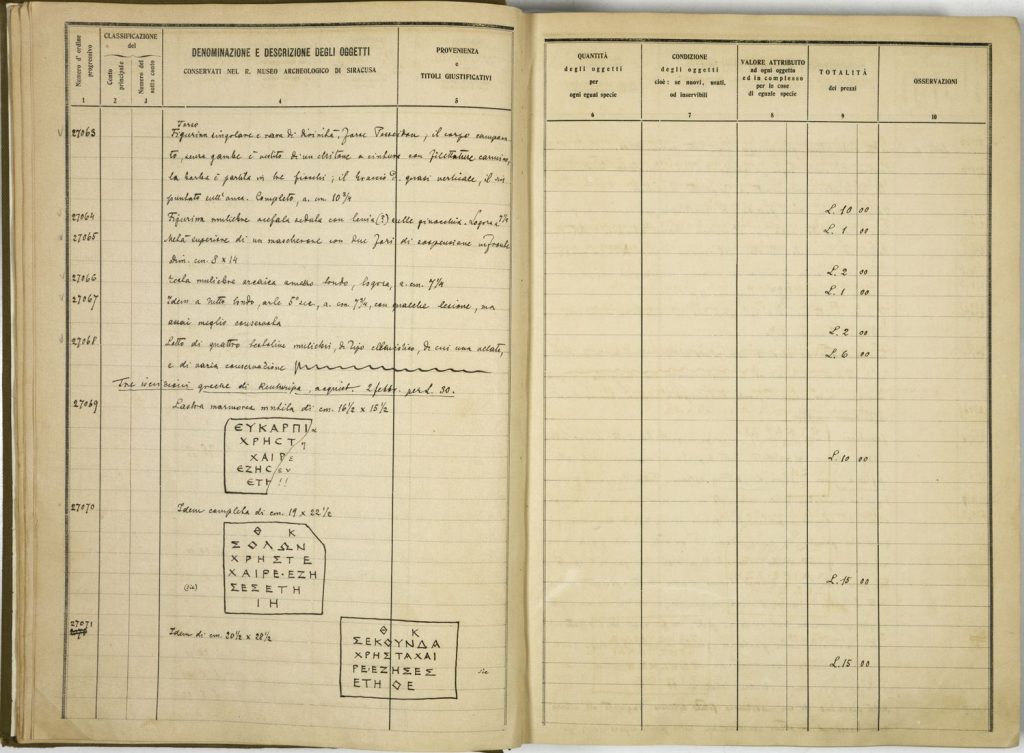 CLASSIFICAZIONE
del
Numero d'ordine progressivo
Conto principale
Numero del sotto conto
DENOMINAZIONE E DESCRIZIONE DEGLI OGGETTI
CONSERVATI NEL R. MUSEO ARCHEOLOGICO DI SIRACUSA
PROVENIENZA
e
TITOLI GIUSTIFICATIVI
1 2 3 4 5
QUANTITÀ
degli oggetti
per
ogni egual specie
CONDIZIONE
degli oggetti
cioè: se nuovi, usati.
od inservibili
VALORE ATTRIBUITO
ad ogni oggetto
ed in complesso
per le cose
di eguale specie
TOTALITÀ
dei prezzi
OSSERVAZIONI
6 7 8 9 10
Torso
27063 Figurina singolare e rara di divinità. Forse Poseidon; il corpo
senza gambe è vestito di un chitone a cintura con filettature
la barba è partita in tre fiocchi; il braccio D. quasi verticale, il sin.
puntato sull'anca. Completo, a. cm. 10 3/4 L. 10 00
27064 Figurina muliebre acefala seduta con (?) sulle ginocchia. Logora 7 1/2 L. 1 00
27065 Metà superiore di un mascherone con due fori di sospensione in fronte
Dim. cm. 8 x 14 L. 2 00
27066 Testa muliebre arcaica a tondo, logora, a. cm. 7 1/4 L. 1 00
27067 Idem a tutto tondo, arte 5º sec., a. cm. 7 3/4, con qualche lesione, ma
assai meglio conservata L. 2 00
27068 Lotto di quattro testoline muliebri, di tipo ellenistico, di cui una velata,
e di varia conservazione L. 6 00
Tre iscrizioni greche di Kenturipa, acquist. 2 febbr. per L. 30.
27069 Lastra marmorea mutila di cm. 16 1/2 x 15 1/2
ΕΥΚΑΡΠΙα
ΧΡΗΣΤη
ΧΑΙΡε L. 10 00
ΕΖΗСεν
ΕΤΗ !!
27070 Idem completa di cm. 19 x 22 1/2
Θ Κ
ΣΟΛΩΝ
ΧΡΗΣΤΕ
ΧΑΙΡΕ·ΕΖΗ L. 15 00
(sic) ΣΕΣΕΤΗ
ΙΗ
27071 Idem di cm. 20 1/2 x 28 1/2
Θ Κ
ΣΕΚΟΥΝΔΑ
ΧΡΗΣΤΑΧΑΙ L. 15 00
ΡΕ·ΕΖΗΣΕΣ sic
ΕΤΗ ΘΕ